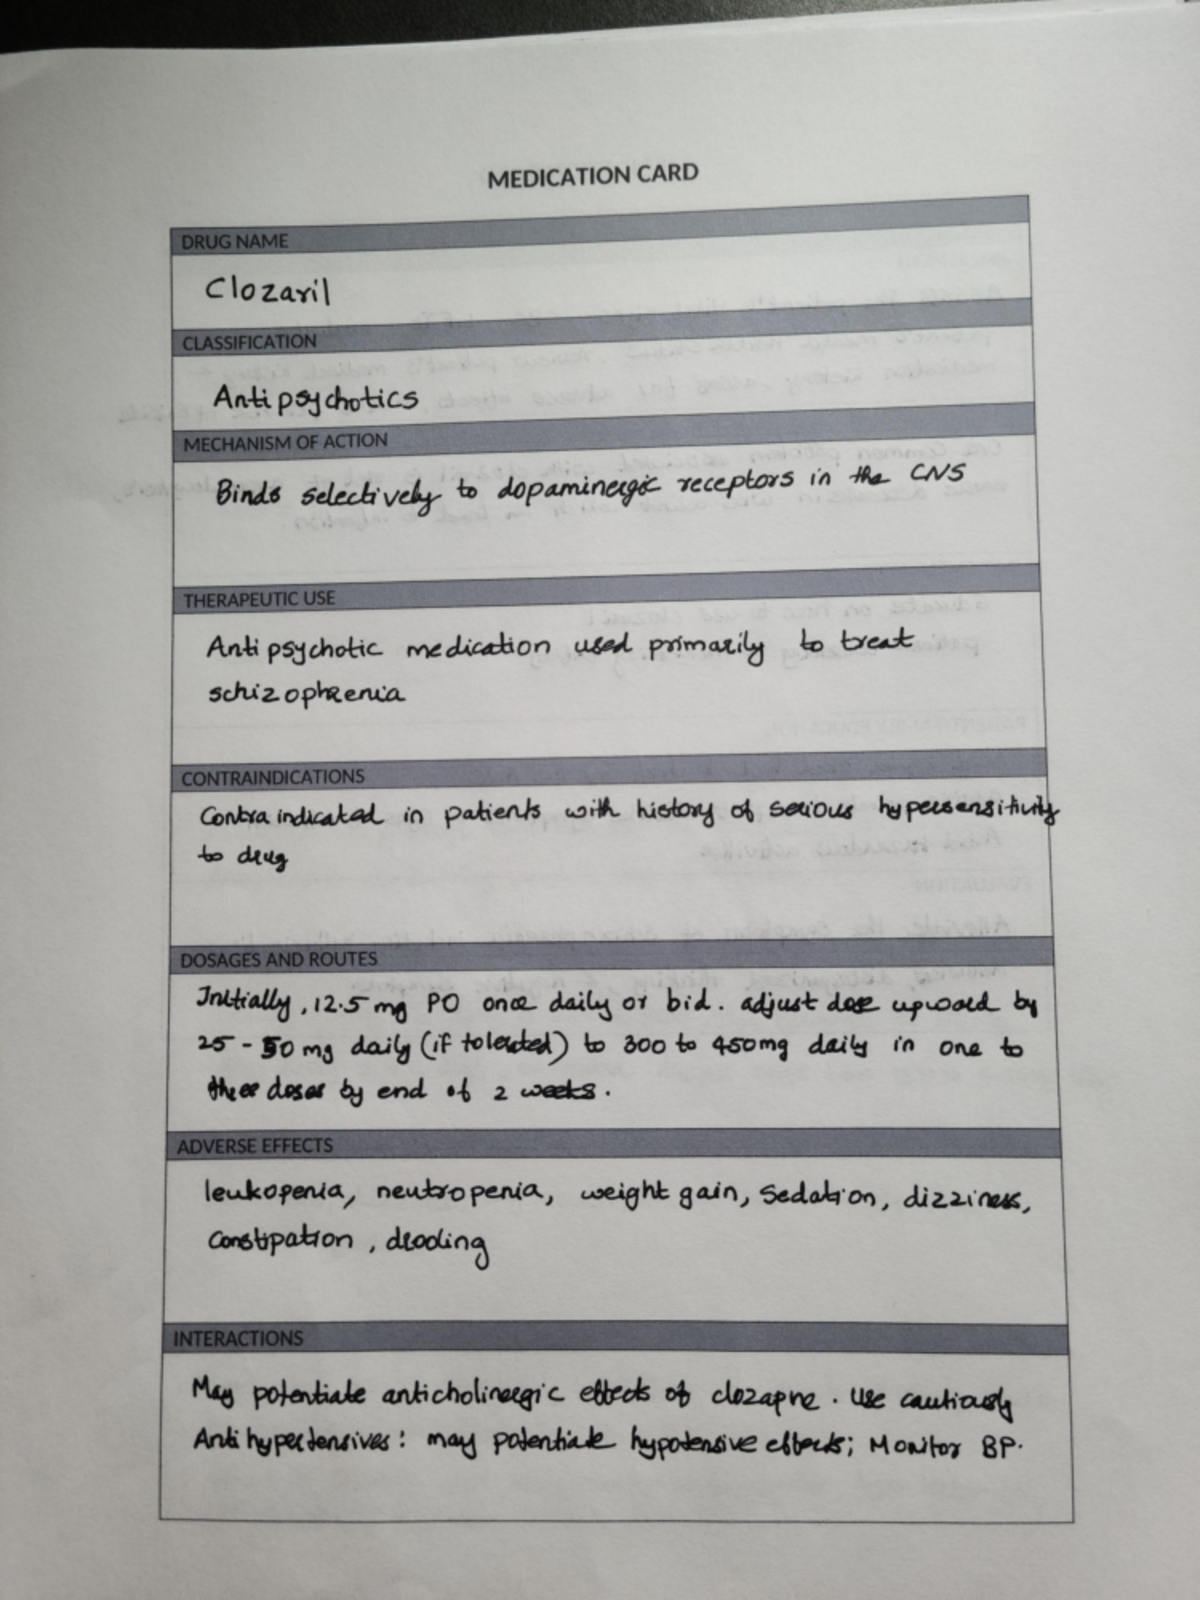 MEDICATION CARD
DRUG NAME
Clozaril
CLASSIFICATION
Antipsychotics
MECHANISM OF ACTION
Binds selectively to dopaminergic receptors in the CNS
THERAPEUTIC USE
Antipsychotic medication used primarily to treat
schizophrenia
CONTRAINDICATIONS
Contraindicated in patients with history of serious hypersensitivity
to drug
DOSAGES AND ROUTES
Initially, 12.5 mg PO once daily or bid. adjust dose upward by
25 - 50 mg daily (if tolerated) to 300 to 450mg daily in one to
three doses by end of 2 weeks.
ADVERSE EFFECTS
leukopenia, neutropenia, weight gain, Sedation, dizziness,
Constipation, drooling
INTERACTIONS
May potentiate anticholinergic effects of clozapne. Use cautiously
Antihypertensives: may potentiate hypotensive effects; Monitor BP.